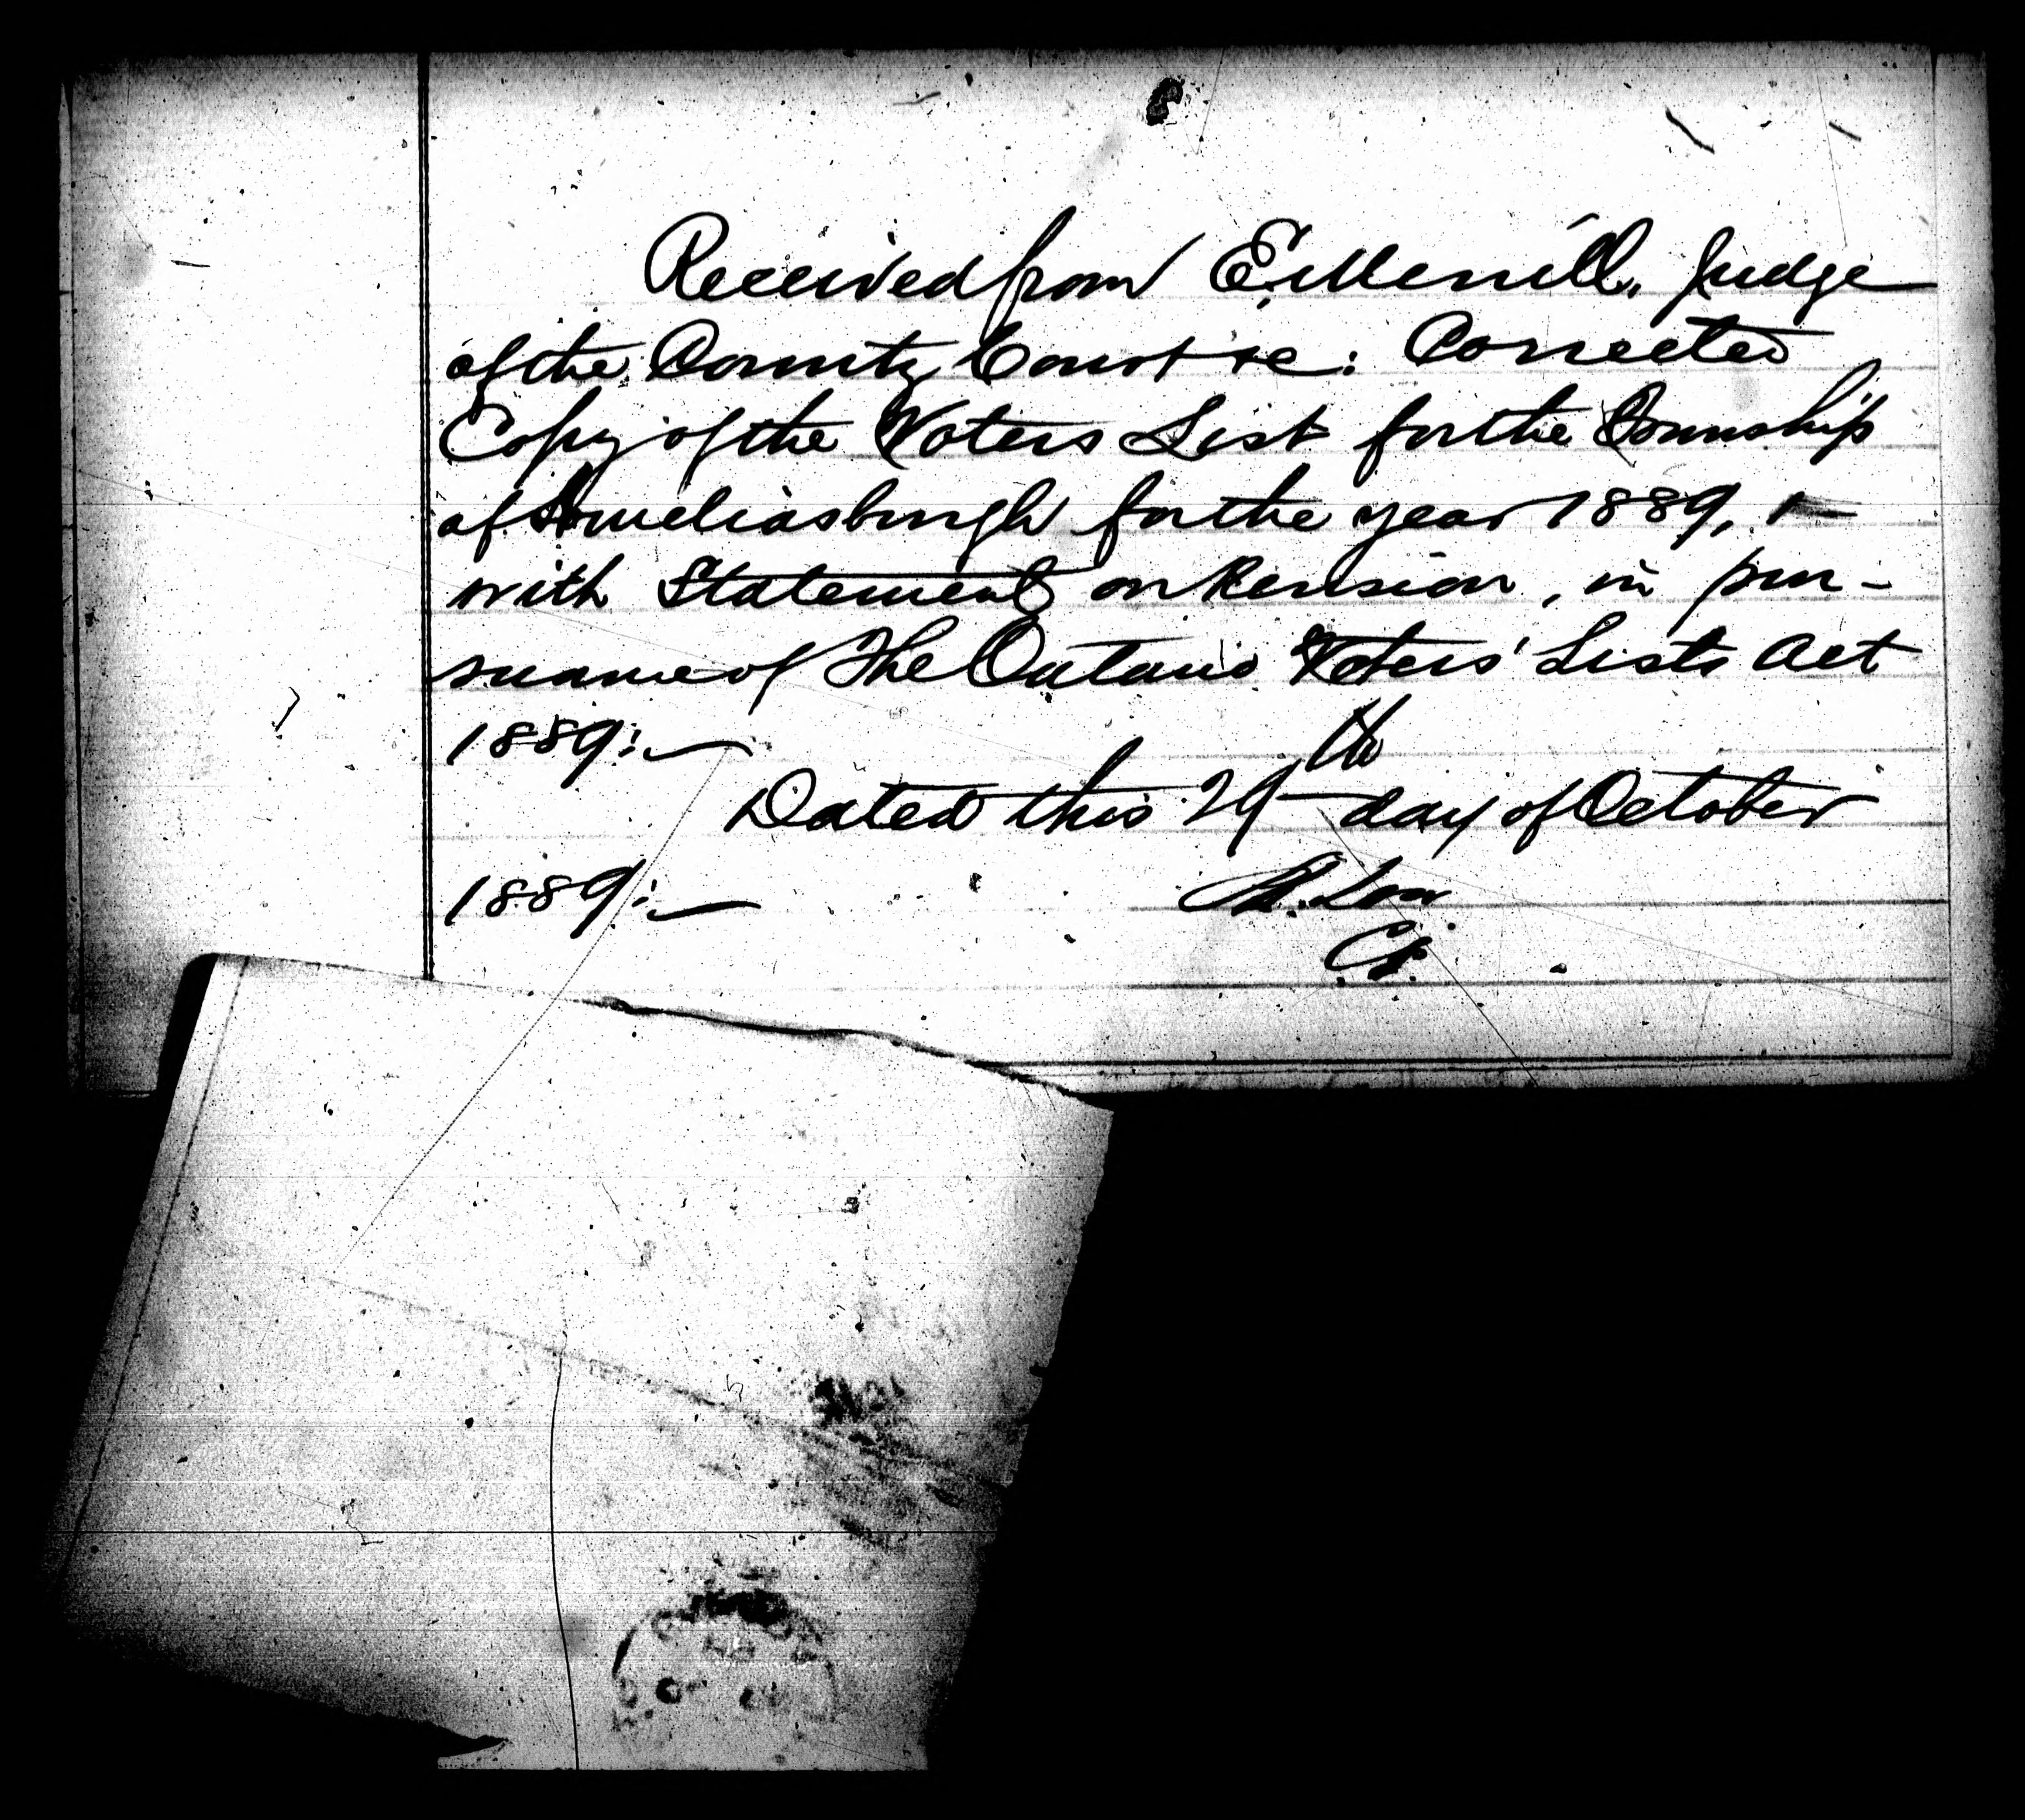 Received from E. Merrill, Judge
of the County Court &c: Corrected
Copy of the Voters List for the Township
of Ameliasburgh for the year 1889,
with Statement on Revision, in pur-
suance of The Ontario Voters' Lists Act
1889:
th
Dated this 29 day of October
1889:
C.P.